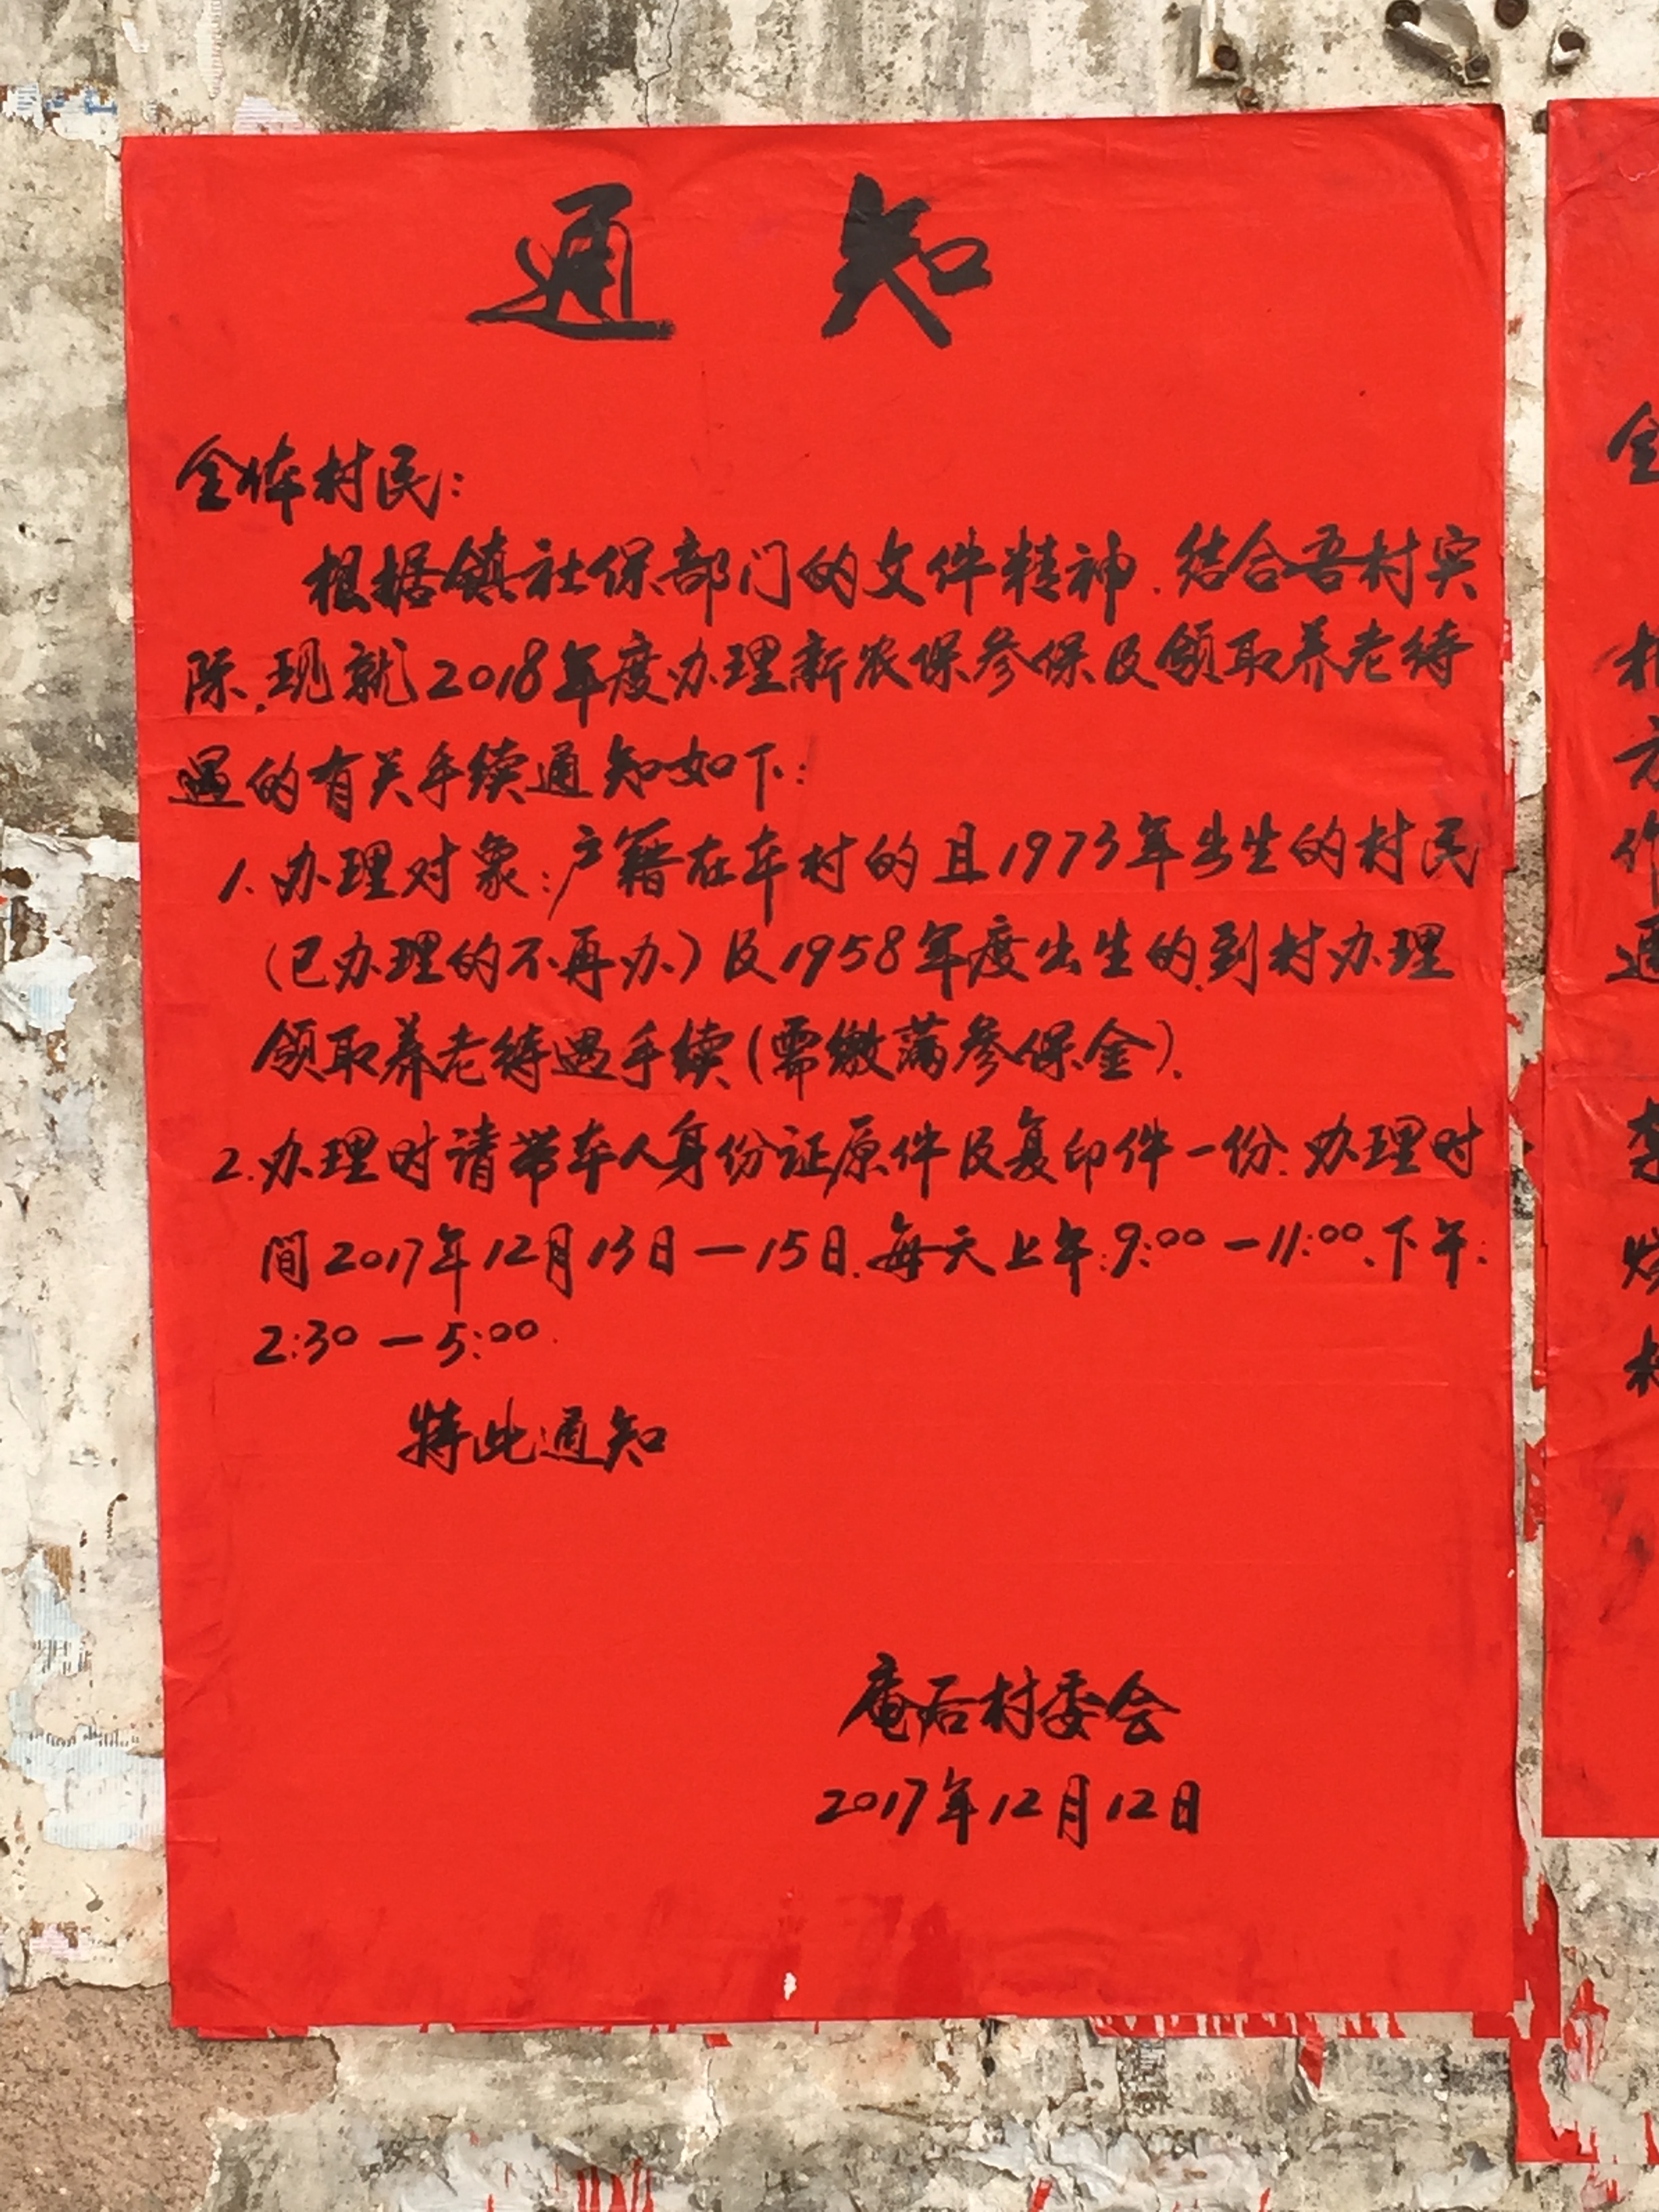 通知
全体村民:
根据镇社保部门的文件精神.结合吾村实
际.现就2018年度办理新农保参保及领取养老待
遇的有关手续通知如下:
1.办理对象:户籍在本村的且1973年出生的村民
(已办理的不再办)及1958年度出生的.到村办理
领取养老待遇手续(需缴满参保金).
2.办理时请带本人身份证原件及复印件一份.办理时
间2017年12月13日—15日.每天上午:9:00—11:00.下午:
2:30—5:00.
特此通知
庵后村委会
2017年12月12日